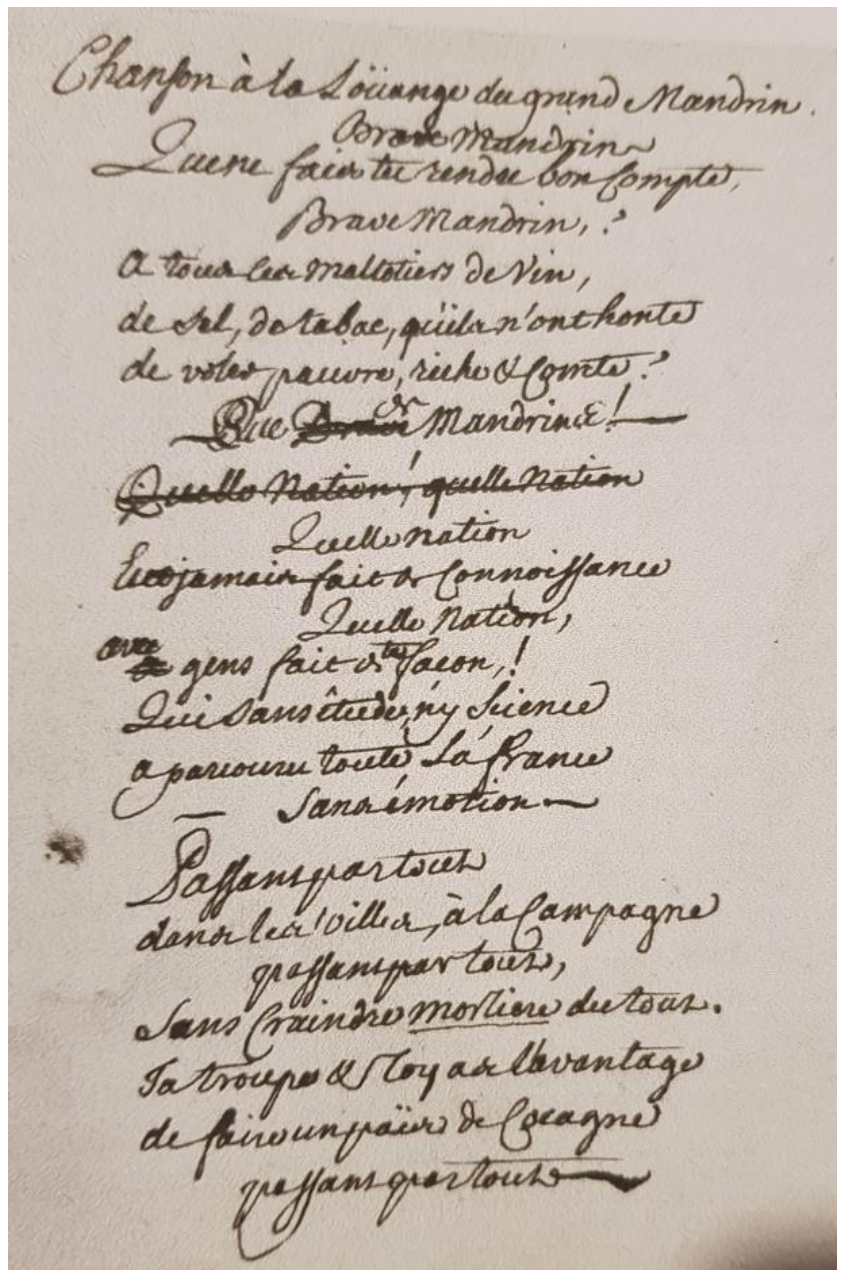 Chanson à la Loüange du grand Mandrin.
Brave Mandrin
Que ne fais tu rendre bon Compte,
Brave Mandrin,?
A tous les maltotiers de Vin,
de Sel, de tabac, qüils n'ont honte
de voler pauvre, riche & Comte?
Brave Mandrin &!
Quelle Nation! quelle Nation
Quelle nation
jamais fait de Connoissance
Quelle Nation,
avec gens fait de ta façon,!
Qui sans étude, n'y Science
a parcouru toute La france
Sans émotion
Passans par tout
dans les villes, à la Campagne
passans par tout,
Sans Craindre mortiere du tout.
Ta troupe & Toy as l'avantage
de faire un païs de Cocagne
passans par tout